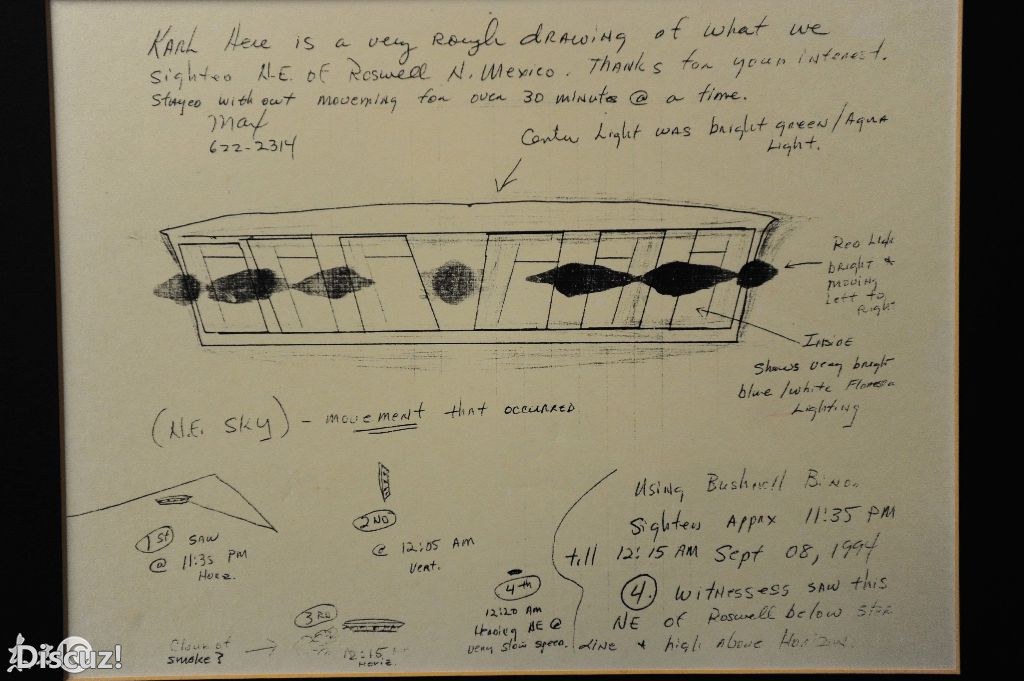 KARL Here is a very Rough drawing of what we
sighted N.E. of Roswell N. Mexico. Thanks for your interest.
Stayed without movening for over 30 minute @ a time.
Max
622-2314
Center Light was bright green/Aqua
Light.
Red Light
bright &
moving
Left to
Right
Inside
Shows very bright
blue/white
Lighting
(N.E. SKY) - movement that occurred
1st SAW
@ 11:35 PM
Horz.
2ND
@ 12:05 AM
Vert.
3RD
Cloud of
smoke?
12:15
Horiz.
4th
12:20 Am
Heading NE @
very slow speed.
Using Bushnell Bino.
Sighted Apprx 11:35 PM
till 12:15 AM Sept 08, 1994
4. witnessess saw this
NE of Roswell below star
LINE & high above Horizon.
Discuz!